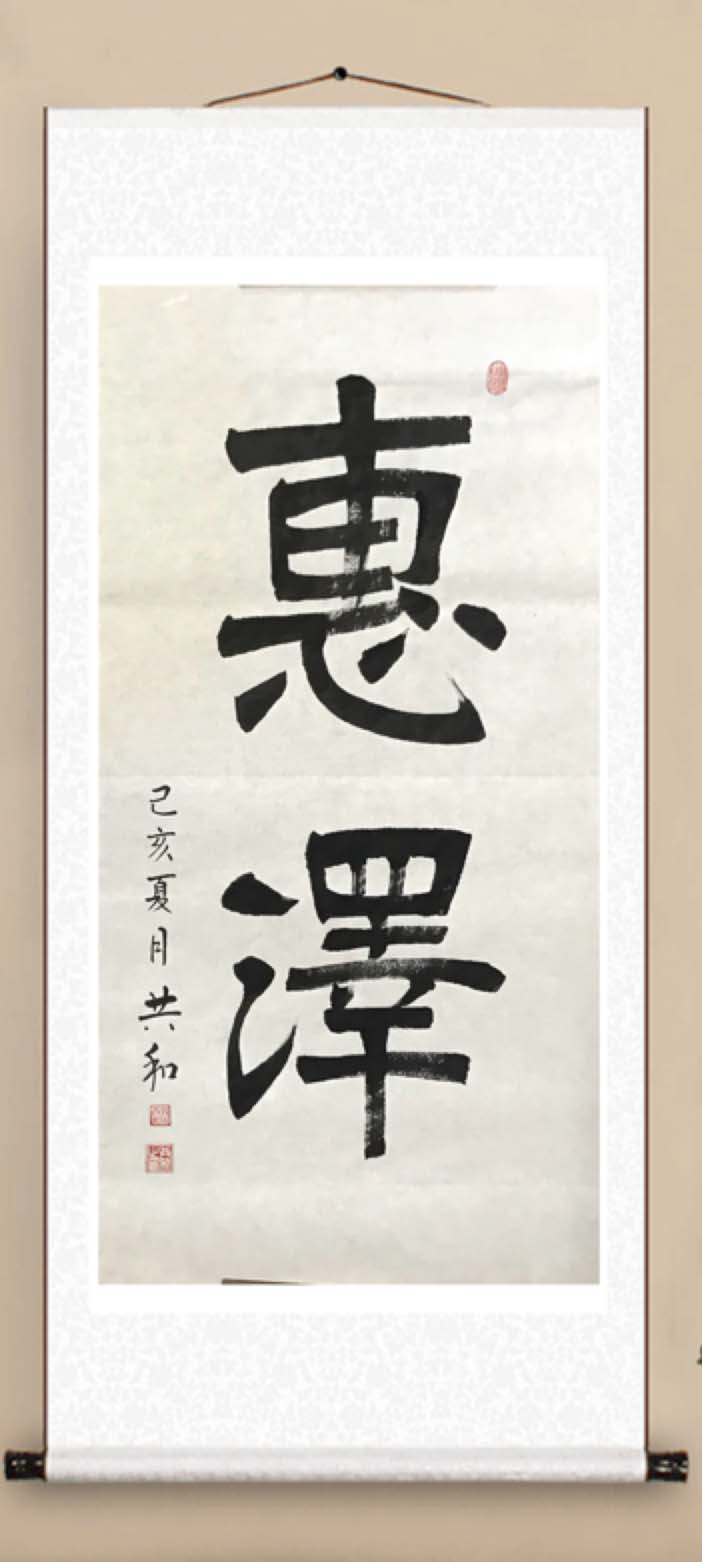 惠澤
己亥夏月共和